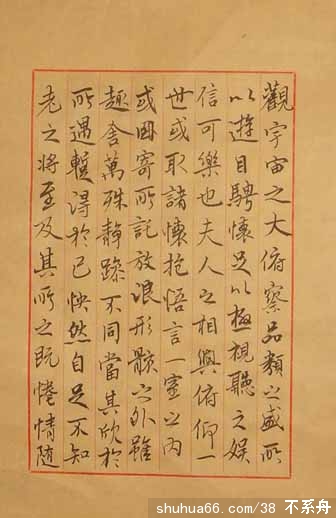 觀宇宙之大俯察品類之盛所
以遊目騁懷足以極視聽之娛
信可樂也夫人之相與俯仰一
世或取諸懷抱悟言一室之內
或因寄所託放浪形骸之外雖
趣舍萬殊靜躁不同當其欣於
所遇蹔得於己怏然自足不知
老之將至及其所之既惓情隨
shuhua66.com/38 不系舟